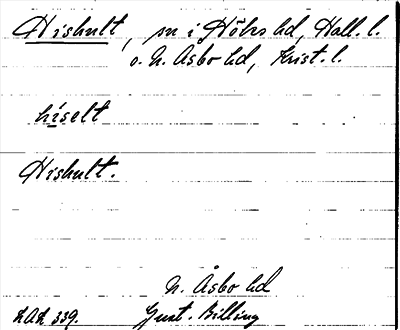 Hishult, sn i Höks hd, Hall. l.
o. N. Åsbo hd, Krist. l.
hi̱selt
Hishult.
N. Åsbo hd
LAL 339. Gust. Billing